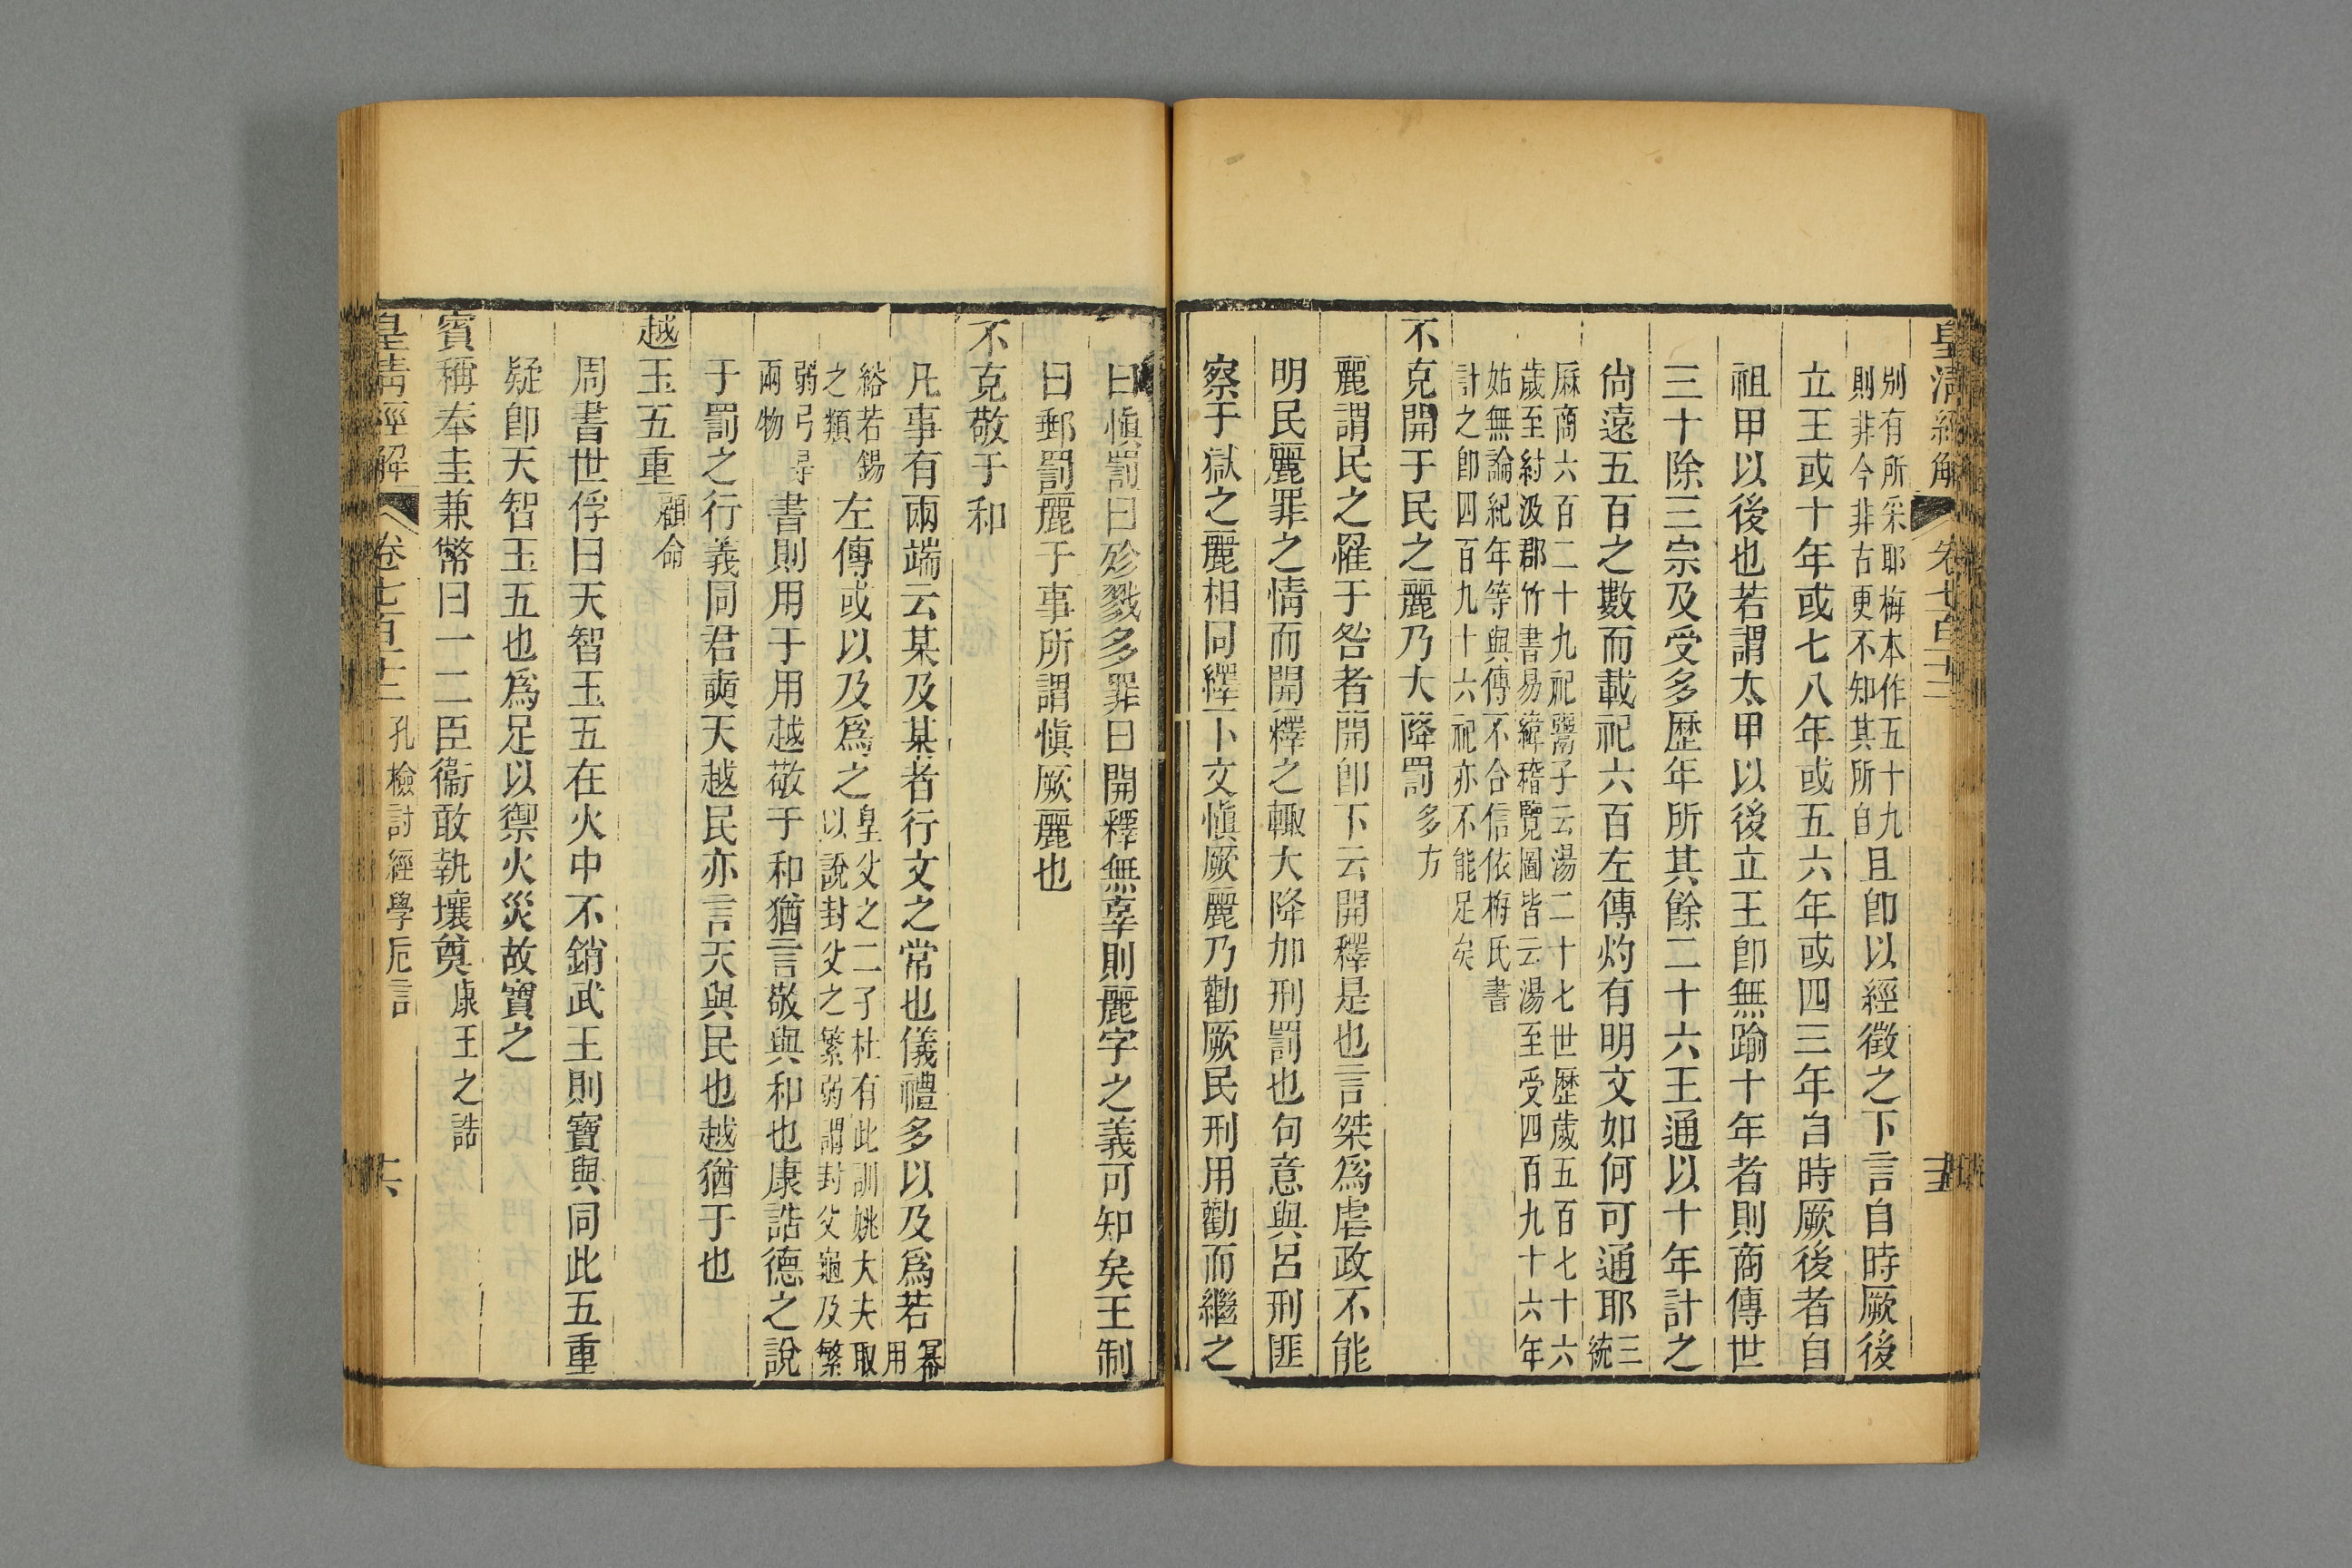 皇清經解 卷七百十二
別有所采耶梅本作五十九
則非今非古更不知其所自
且卽以經徵之下言自時厥後
立王或十年或七八年或五六年或四三年自時厥後者自
祖甲以後也若謂太甲以後立王卽無踰十年者則商傳世
三十除三宗及受多歷年所其餘二十六王通以十年計之
尙遠五百之數而載祀六百左傳灼有明文如何可通耶
三
統
厤商六百二十九祀鬻子云湯二十七世歷歲五百七十六
歲至紂汲郡竹書易緯稽覽圖皆云湯至受四百九十六年
姑無論紀年等與傳不合信依梅氏書
計之卽四百九十六祀亦不能足矣
不克開于民之麗乃大降罰
多方
麗謂民之罹于咎者開卽下云開釋是也言桀爲虐政不能
明民麗罪之情而開釋之輒大降加刑罰也句意與呂刑匪
察于獄之麗相同繹下文愼厥麗乃勸厥民刑用勸而繼之
曰愼罰曰殄戮多罪曰開釋無辜則麗字之義可知矣王制
曰郵罰麗于事所謂愼厥麗也
不克敬于和
凡事有兩端云某及某者行文之常也儀禮多以及爲若
冪
用
綌若錫
之類
左傳或以及爲之
皇父之二子杜有此訓姚大夫取
以說封父之繁弱謂封父龜及繁
弱弓尋
兩物
書則用于用越敬于和猶言敬與和也康誥德之說
于罰之行義同君奭天越民亦言天與民也越猶于也
越玉五重
顧命
周書世俘曰天智玉五在火中不銷武王則寶與同此五重
疑卽天智玉五也爲足以禦火災故寶之
賓稱奉圭兼幣曰一二臣衞敢執壤奠
康王之誥
皇清經解 卷七百十二 孔檢討經學卮言 六